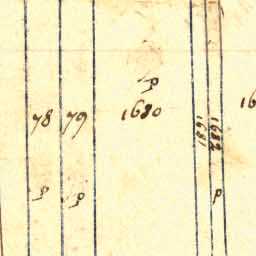 p
78 79 1680
1681
1682
p p p